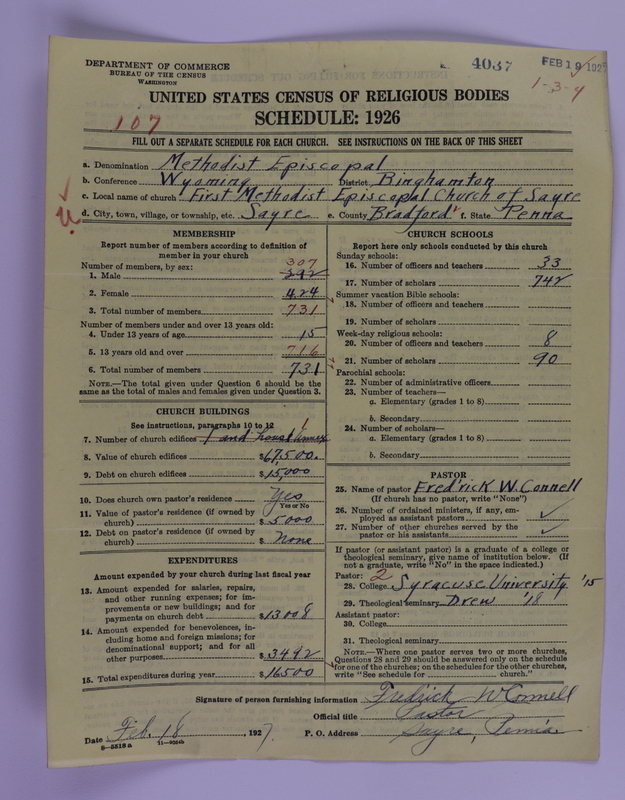 DEPARTMENT OF COMMERCE
BUREAU OF THE CENSUS
WASHINGTON
4037
FEB 19 192
1-3-4
UNITED STATES CENSUS OF RELIGIOUS BODIES
SCHEDULE: 1926
107
FILL OUT A SEPARATE SCHEDULE FOR EACH CHURCH. SEE INSTRUCTIONS ON THE BACK OF THIS SHEET
a. Denomination Methodist Episcopal
b. Conference Wyoming District Binghamton
c. Local name of church First Methodist Episcopal Church of Sayre
d. City, town, village, or township, etc. Sayre e. County Bradford f. State Penna
MEMBERSHIP
Report number of members according to definition of
member in your church
Number of members, by sex:
307
1. Male 292
2. Female 424
3. Total number of members 731
Number of members under and over 13 years old:
4. Under 13 years of age 15
5. 13 years old and over 716
6. Total number of members 731
NOTE.—The total given under Question 6 should be
the same as the total of males and females given under Question 3.
CHURCH BUILDINGS
See instructions, paragraphs 10 to 12
7. Number of church edifices 1 and Annex 1
8. Value of church edifices $67,500.
9. Debt on church edifices $15,000
10. Does church own pastor's residence Yes
Yes or No
11. Value of pastor's residence (if owned by
church) $5000
12. Debt on pastor's residence (if owned by
church) $ None
EXPENDITURES
Amount expended by your church during last fiscal year
13. Amount expended for salaries, repairs,
and other running expenses; for im-
provements or new buildings; and for
payments on church debt $13008
14. Amount expended for benevolences, in-
cluding home and foreign missions; for
denominational support; and for all
other purposes $3492
15. Total expenditures during year $16500
CHURCH SCHOOLS
Report here only schools conducted by this church
Sunday schools:
16. Number of officers and teachers 33
17. Number of scholars 742
Summer vacation Bible schools:
18. Number of officers and teachers
19. Number of scholars
Week-day religious schools:
20. Number of officers and teachers 8
21. Number of scholars 90
Parochial schools:
22. Number of administrative officers
23. Number of teachers—
a. Elementary (grades 1 to 8)
b. Secondary
24. Number of scholars—
a. Elementary (grades 1 to 8)
b. Secondary
PASTOR
25. Name of pastor Fredrick W. Connell
(If church has no pastor, write "None")
26. Number of ordained ministers, if any, em-
ployed as assistant pastors ✓
27. Number of other churches served by the
pastor or his assistants ✓
If pastor (or assistant pastor) is a graduate of a college or
theological seminary, give name of institution below. (If
not a graduate, write "No" in the space indicated.)
Pastor: 2
28. College Syracuse University '15
29. Theological seminary Drew '18
Assistant pastor:
30. College
31. Theological seminary
NOTE.—Where one pastor serves two or more churches,
Questions 28 and 29 should be answered only on the schedule
for one of the churches; on the schedules for the other churches,
write "See schedule for church."
Signature of person furnishing information Fredrick W Connell
Official title Pastor
Date Feb. 18, 1927. P. O. Address Sayre, Penna.
8—5518a 11—9264b